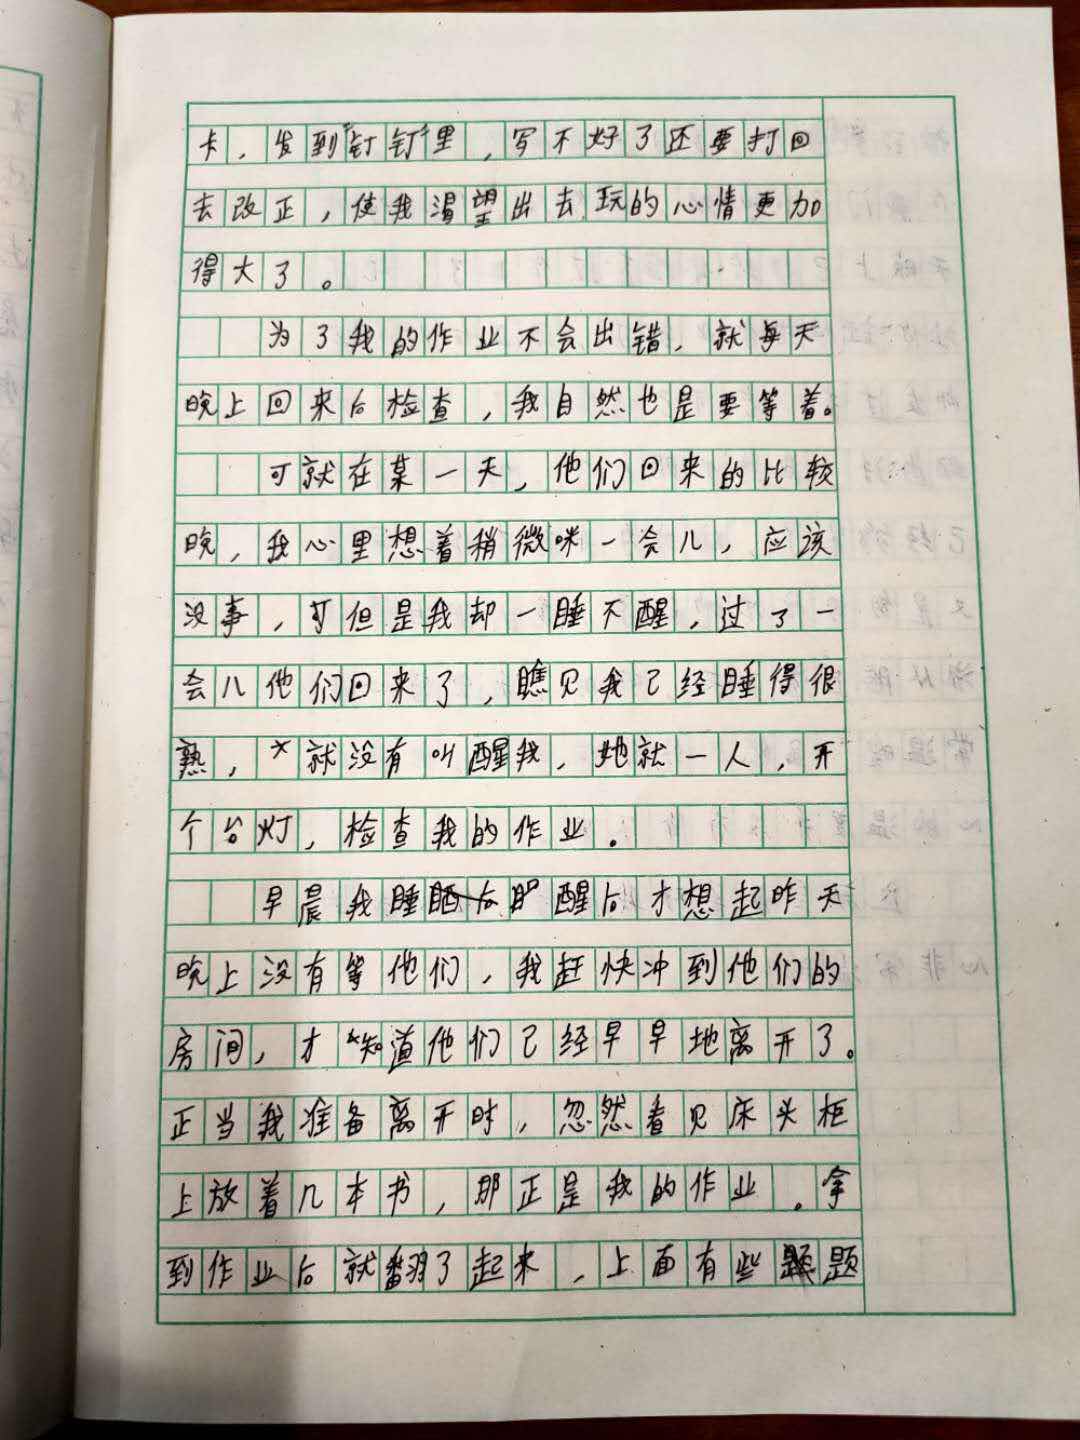 卡，发到“钉钉”里，写不好了还要打回
去改正，使我渴望出去玩的心情更加
得大了。
为了我的作业不会出错，就每天
晚上回来后检查，我自然也是要等着。
可就在某一天，他们回来的比较
晚，我心里想着稍微咪一会儿，应该
没事，可但是我却一睡不醒，过了一
会儿他们回来了，瞧见我已经睡得很
熟，就没有叫醒我，她就一人，开
个台灯，检查我的作业。
早晨我睡醒后才想起昨天
晚上没有等他们，我赶快冲到他们的
房间，才知道他们已经早早地离开了。
正当我准备离开时，忽然看见床头柜
上放着几本书，那正是我的作业。拿
到作业后就翻了起来，上面有些题